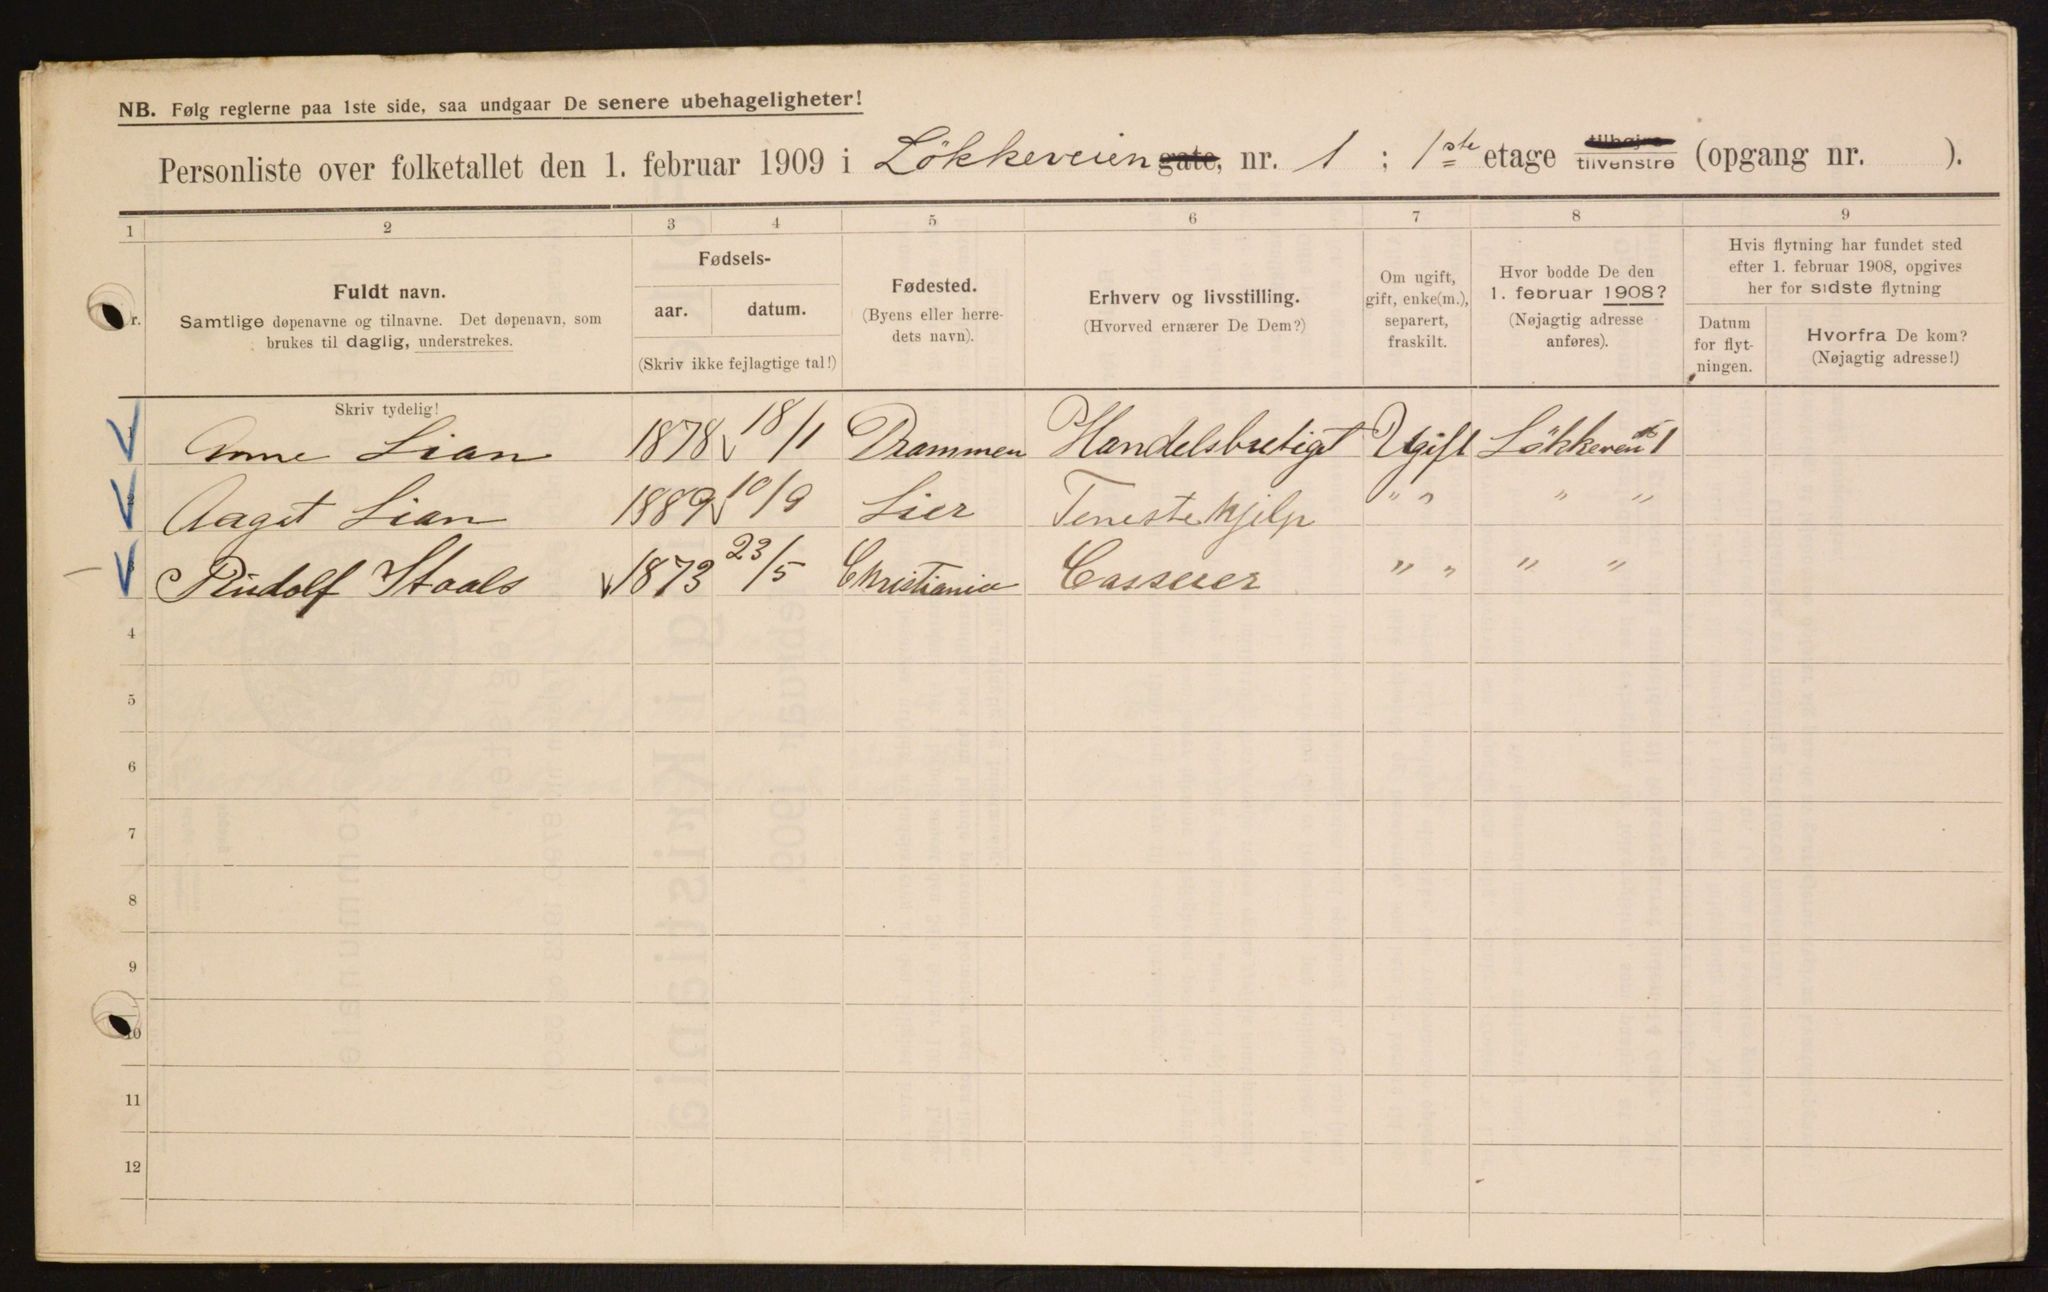 NB. Følg reglerne paa 1ste side, saa undgaar De senere ubehageligheter!
Personliste over folketallet den 1. februar 1909 i Løkkeveien gate, nr. 1 : 1ste etage tilhøjre tilvenstre (opgang nr. ).
1 2 3 4 5 6 7 8 9
Nr.
Fuldt navn.
Samtlige døpenavne og tilnavne. Det døpenavn, som
brukes til daglig, understrekes.
Fødsels-
aar. datum.
(Skriv ikke fejlagtige tal!)
Fødested.
(Byens eller herre-
dets navn).
Erhverv og livsstilling.
(Hvorved ernærer De Dem?)
Om ugift,
gift, enke(m.),
separert,
fraskilt.
Hvor bodde De den
1. februar 1908?
(Nøjagtig adresse
anføres).
Hvis flytning har fundet sted
efter 1. februar 1908, opgives
her for sidste flytning
Datum
for flyt-
ningen.
Hvorfra De kom?
(Nøjagtig adresse!)
Skriv tydelig!
Anne Lian 1878 18/1 Drammen Handelsbretigt Ugift Løkkevei 1
Aagot Lian 1889 10/9 Lier Tenestehjelp " " " "
Rudolf Staals 1873 23/5 Christiania Casserer " " " "
4
5
6
7
8
9
10
11
12